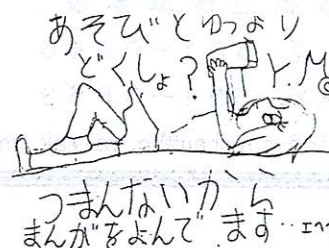 あそびとゆうより
どくしょ?
Y.M
つまんないから
まんがをよんで ます‥